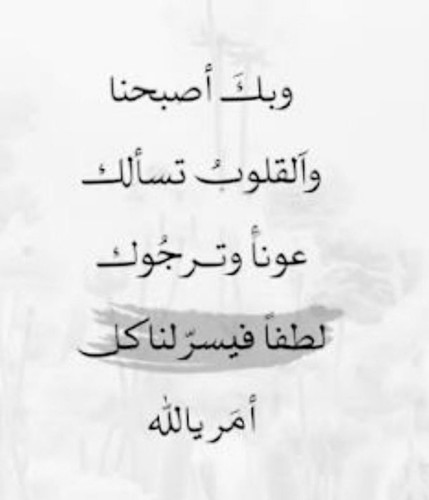 وبكَ أصبحنا
واَلقلوبُ تسألك
عوناً وتـرجُوك
لطفاً فيسرّ لنا كل
أمَر يالله